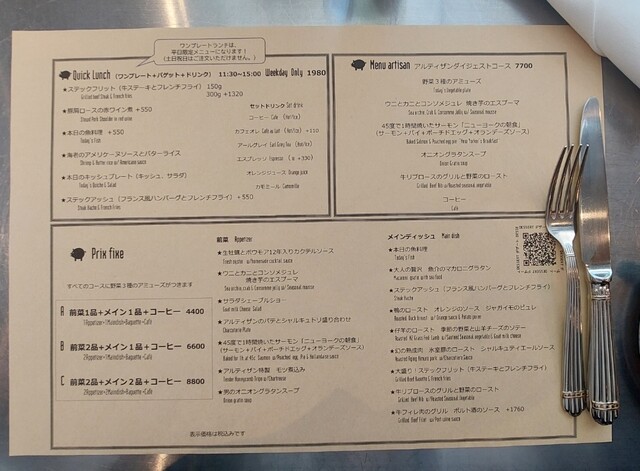 ワンプレートランチは、
平日限定メニューになります!
(土日祝日はご注文いただけません。)
Quick Lunch (ワンプレート+バゲット+ドリンク) 11:30~15:00 Weekday Only 1980
★ステックフリット(牛ステーキとフレンチフライ) 150g
Grilled Beef Steak & French Fries 300g +1320
★豚肩ロースの赤ワイン煮 +550
★本日の魚料理 +550
Today's Fish
★海老のアメリケーヌソースとバターライス
★本日のキッシュプレート (キッシュ、サラダ)
Today's Quiche & Salad
★ステックアッシェ(フランス風ハンバーグとフレンチフライ) +550
Steak Hache & French Fries
セットドリンク Set drink
コーヒー Cafe (Hot/Ice)
カフェオレ Café au Lait (Hot/Ice) +110
アールグレイ Earl Grey Tea (Hot/Ice)
エスプレッソ Espresso
オレンジジュース Orange juice
カモミール Camomille
Menu artisan アルティザンダイジェストコース 7700
野菜3種のアミューズ
Today's Vegetable plate
ウニとカニとコンソメジュレ 焼き芋のエスプーマ
Sea urchin, Crab & Consomme Jelly w/ Seasonal mousse
45度で1時間焼いたサーモン「ニューヨークの朝食」
(サーモン+パイ+ポーチドエッグ+オランデーズソース)
オニオングラタンスープ
Onion Gratin soup
牛リブロースのグリルと野菜のロースト
Grilled Beef Rib w/Roasted seasonal vegetable
コーヒー
Cafe
Prix fixe
すべてのコースに野菜3種のアミューズがつきます
A 前菜1品+メイン1品+コーヒー 4400
1Appetizer+1Maindish+Baguette+Cafe
B 前菜2品+メイン1品+コーヒー 6600
2Appetizer+1Maindish+Baguette+Cafe
C 前菜2品+メイン2品+コーヒー 8800
2Appetizer+2Maindish+Baguette+Cafe
表示価格は税込みです
前菜 Appetizer
★生牡蠣とボウモア12年入りカクテルソース
★ウニとカニとコンソメジュレ
焼き芋のエスプーマ
Sea urchin, crab & Consomme jelly w/ Seasonal mousse
★サラダシェーブルショー
Goat milk Cheese Salad
★アルティザンのパテとシャルキュトリ盛り合わせ
Charcuterie Plate
★45度で1時間焼いたサーモン「ニューヨークの朝食」
(サーモン+パイ+ポーチドエッグ+オランデーズソース)
★アルティザン特製 モツ煮込み
★男のオニオングラタンスープ
Onion gratin soup
メインディッシュ Main dish
★本日の魚料理
Today's Fish
★大人の贅沢 魚介のマカロニグラタン
Macaroni gratin with seafood
★ステックアッシェ(フランス風ハンバーグとフレンチフライ)
Steak Hache
★鴨のロースト オレンジのソース ジャガイモのピュレ
Roasted Duck breast w/ Orange sauce & Potato puree
★仔羊のロースト 季節の野菜と山羊チーズのソテー
★幻の熟成肉 氷室豚のロースト シャルキュティエールソース
★大盛り!ステックフリット(牛ステーキとフレンチフライ)
Grilled Beef Roasted & French fries
★牛リブロースのグリルと野菜のロースト
Grilled Beef Rib w/ Roasted seasonal vegetable
★牛フィレ肉のグリル ポルト酒のソース +1760
Grilled Beef Filet w/ Port wine sauce